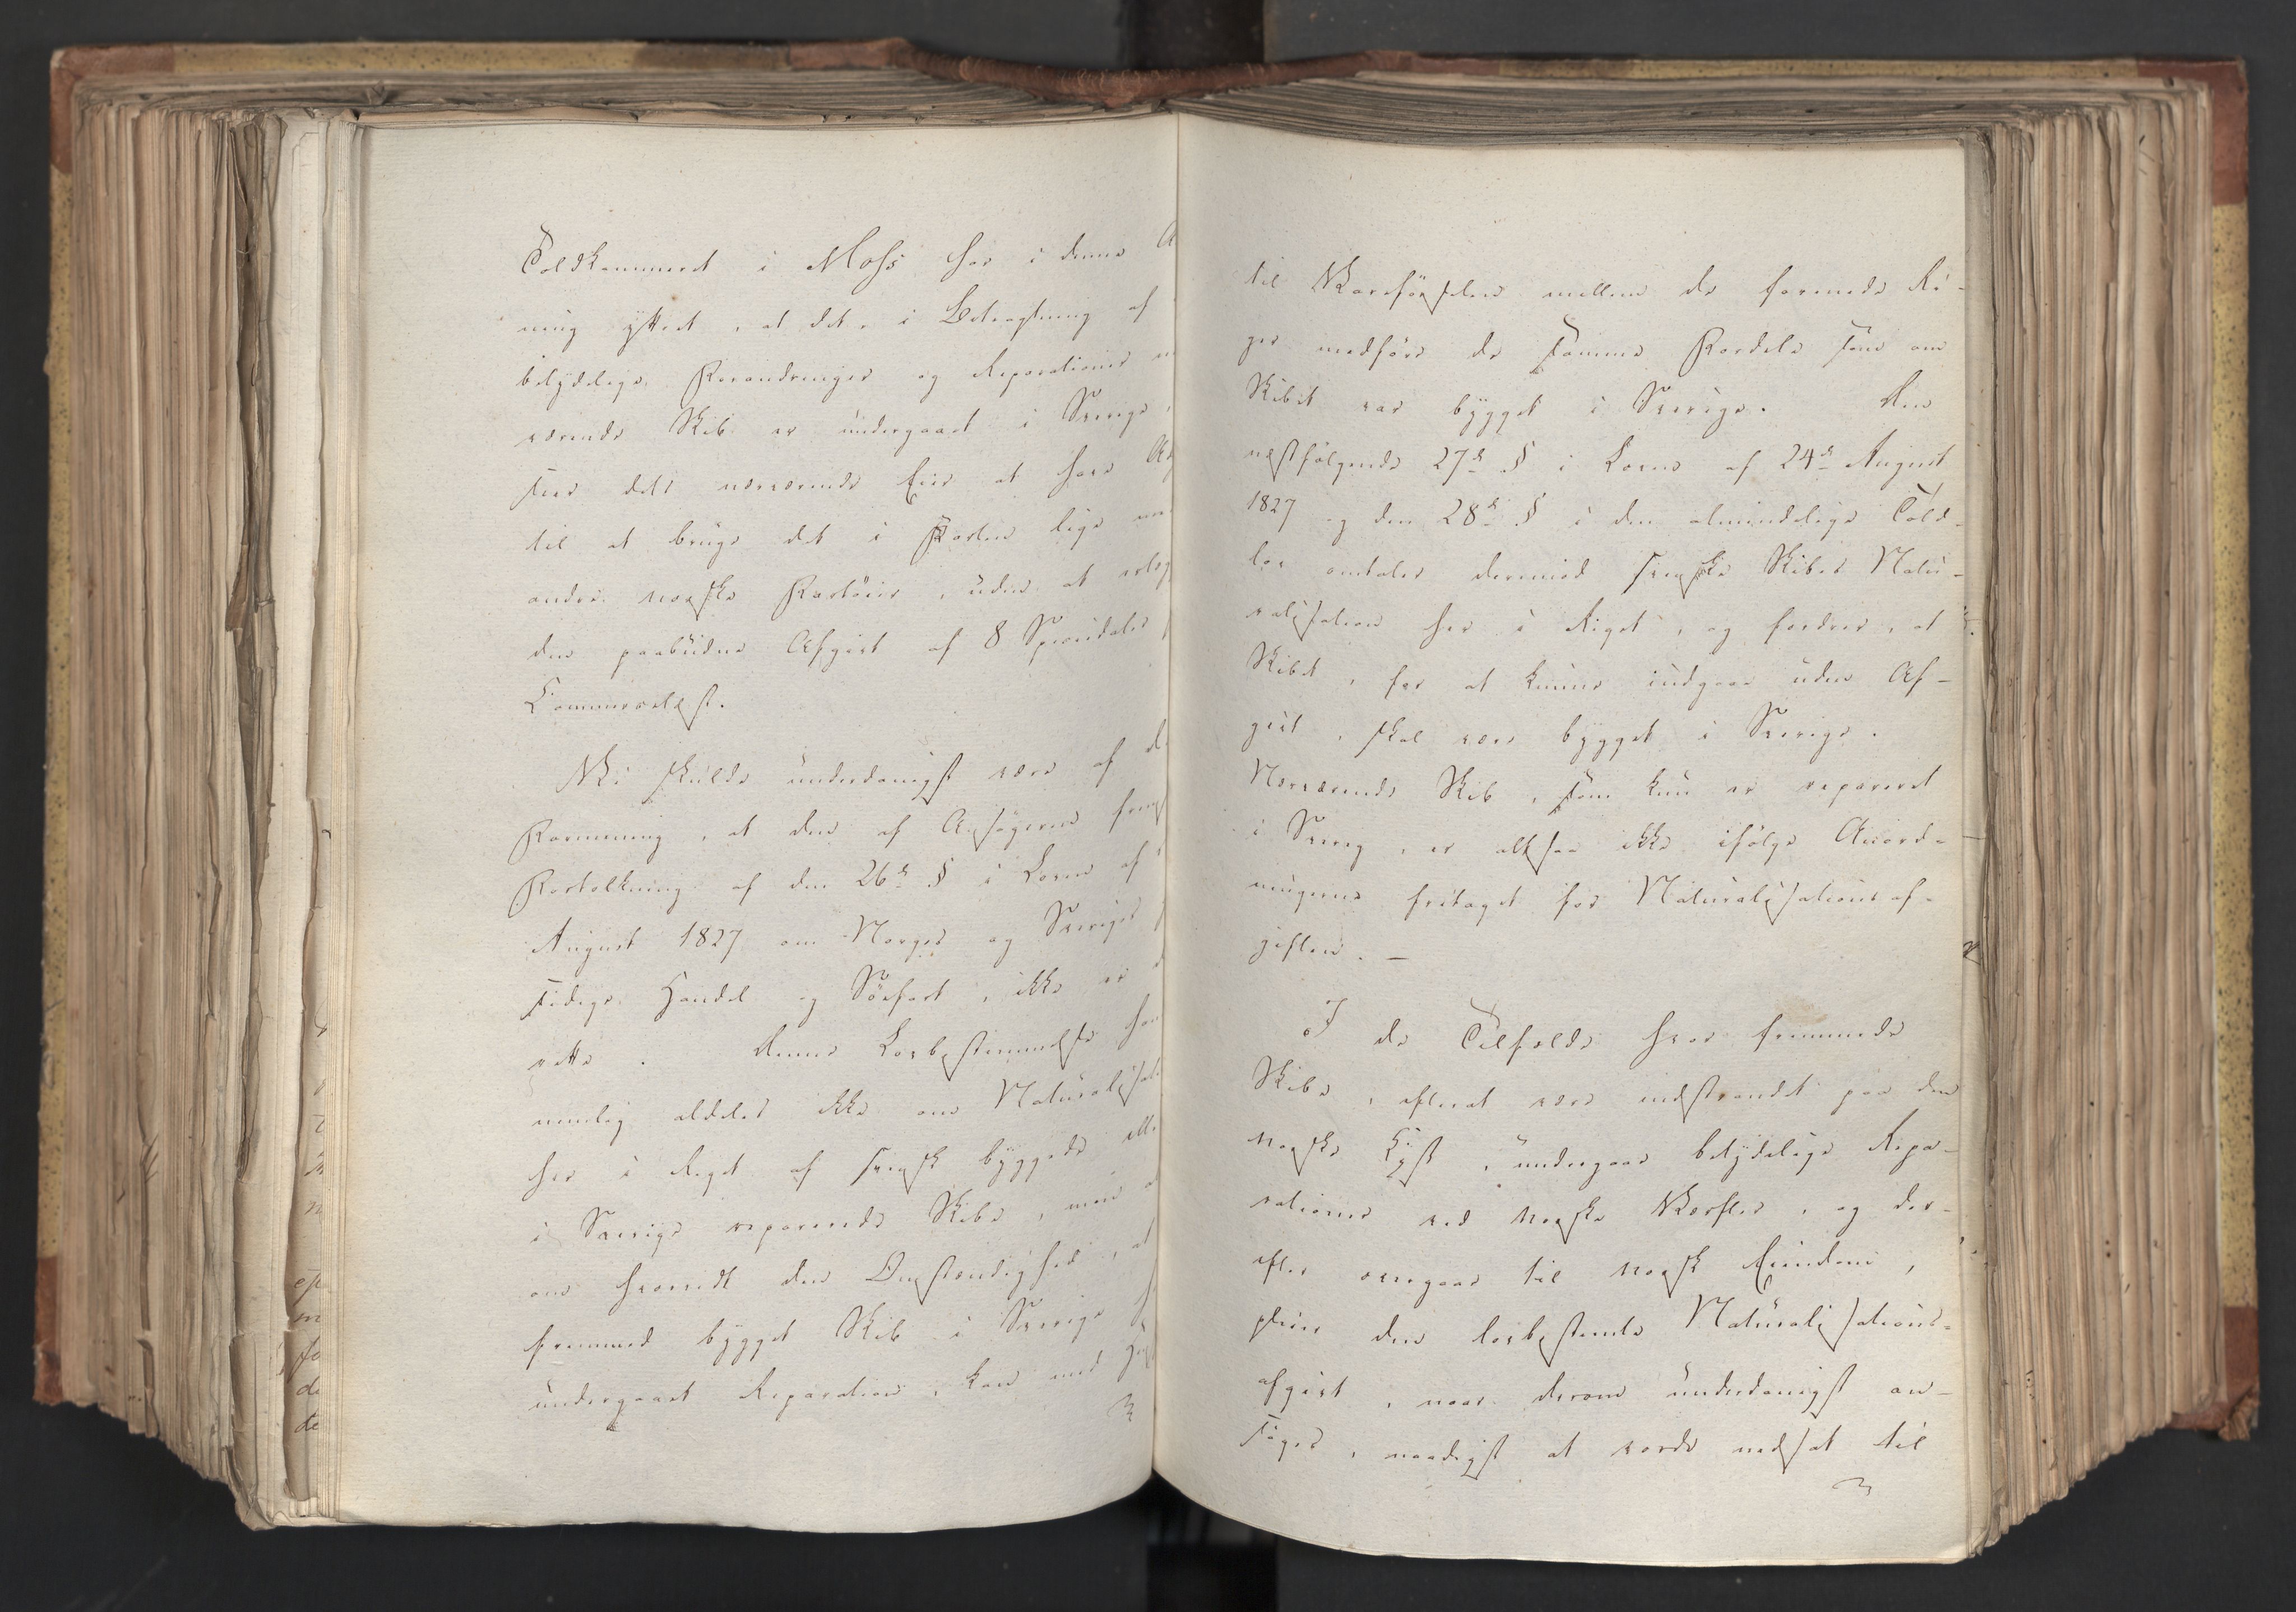 Toldkammeret i Moss har i denne A
ning yttret, at det, i Betragtning af
betydelige Forandringer og Reparationer
værende Skib er undergaaet i Sverige,
tier dets nærværende Eier at have Ad
til at bruge det i Farten lige
andre norske Fartöier, uden at erlæg
den paabudne Afgivt af 8 Speciedaler
Commercelæst.
Vi skulde underdanigst være af d
Formening, at den af Ansögeren frem
Fortolkning af den 26de § i Loven af
August 1827 om Norges og Sveriges
sidige Handel og Söefart, ikke er
rette. Denne Lovbestemmelse han
nemlig aldeles ikke om Naturalisat
her i Riget af svensk byggede elle
i Sverige reparerede Skibe, men
om hvorvidt den Omstændighed, at
fremmed bygget Skib i Sverige h
undergaaet Reparation, kan med H
til Vareförselen mellem de forenede Ri-
ger medföre de samme Fordele som om
Skibet var bygget i Sverige. Den
næstfölgende 27de § i Loven af 24de August
1827 og den 28de § i den almindelige Told-
lov omtaler derimod svenske Skibes Natu-
ralisation her i Riget, og fordrer, at
Skibet, for at kunne indgaae uden Af-
givt, skal være bygget i Sverige.
Nærværende Skib, som kun er repareret
i Sverig, er altsaa ikke ifölge Anord-
ningerne fritaget for Naturalisationsaf-
giften. —
I de Tilfælde hvor fremmede
Skibe, efterat være indstrandet paa den
norske Kyst, undergaae betydelige Repa-
rationer ved norske Værfter, og der-
efter overgaae til norsk Eiendom,
pleier den lovbestemte Naturalisations-
afgivt, naar derom underdanigst an-
söges, naadigst at vorde nedsat til